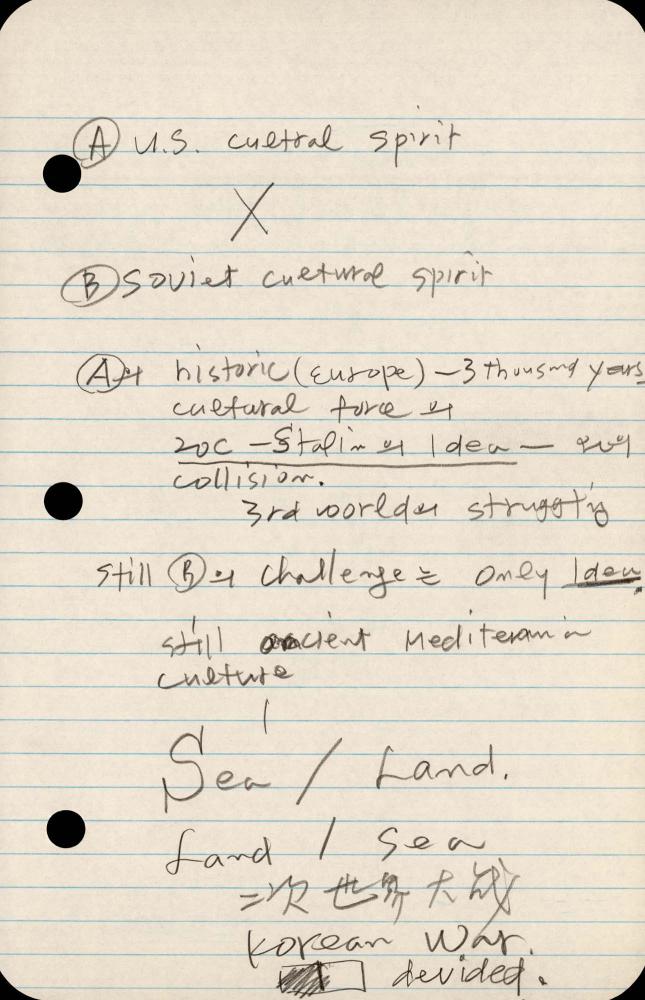 Ⓐ U.S. cultral spirit
X
Ⓑ Soviet cultural spirit
Ⓐ의 historic (Europe) – 3 thousand years
cultural force 와
20C – Stalin의 Idea – 와의
collision.
3rd world의 struggling
still Ⓑ의 challenge는 only Idea.
still ancient Mediteranian
culture
Sea / Land.
Land / Sea
二次世界大战
Korean War.
devided.